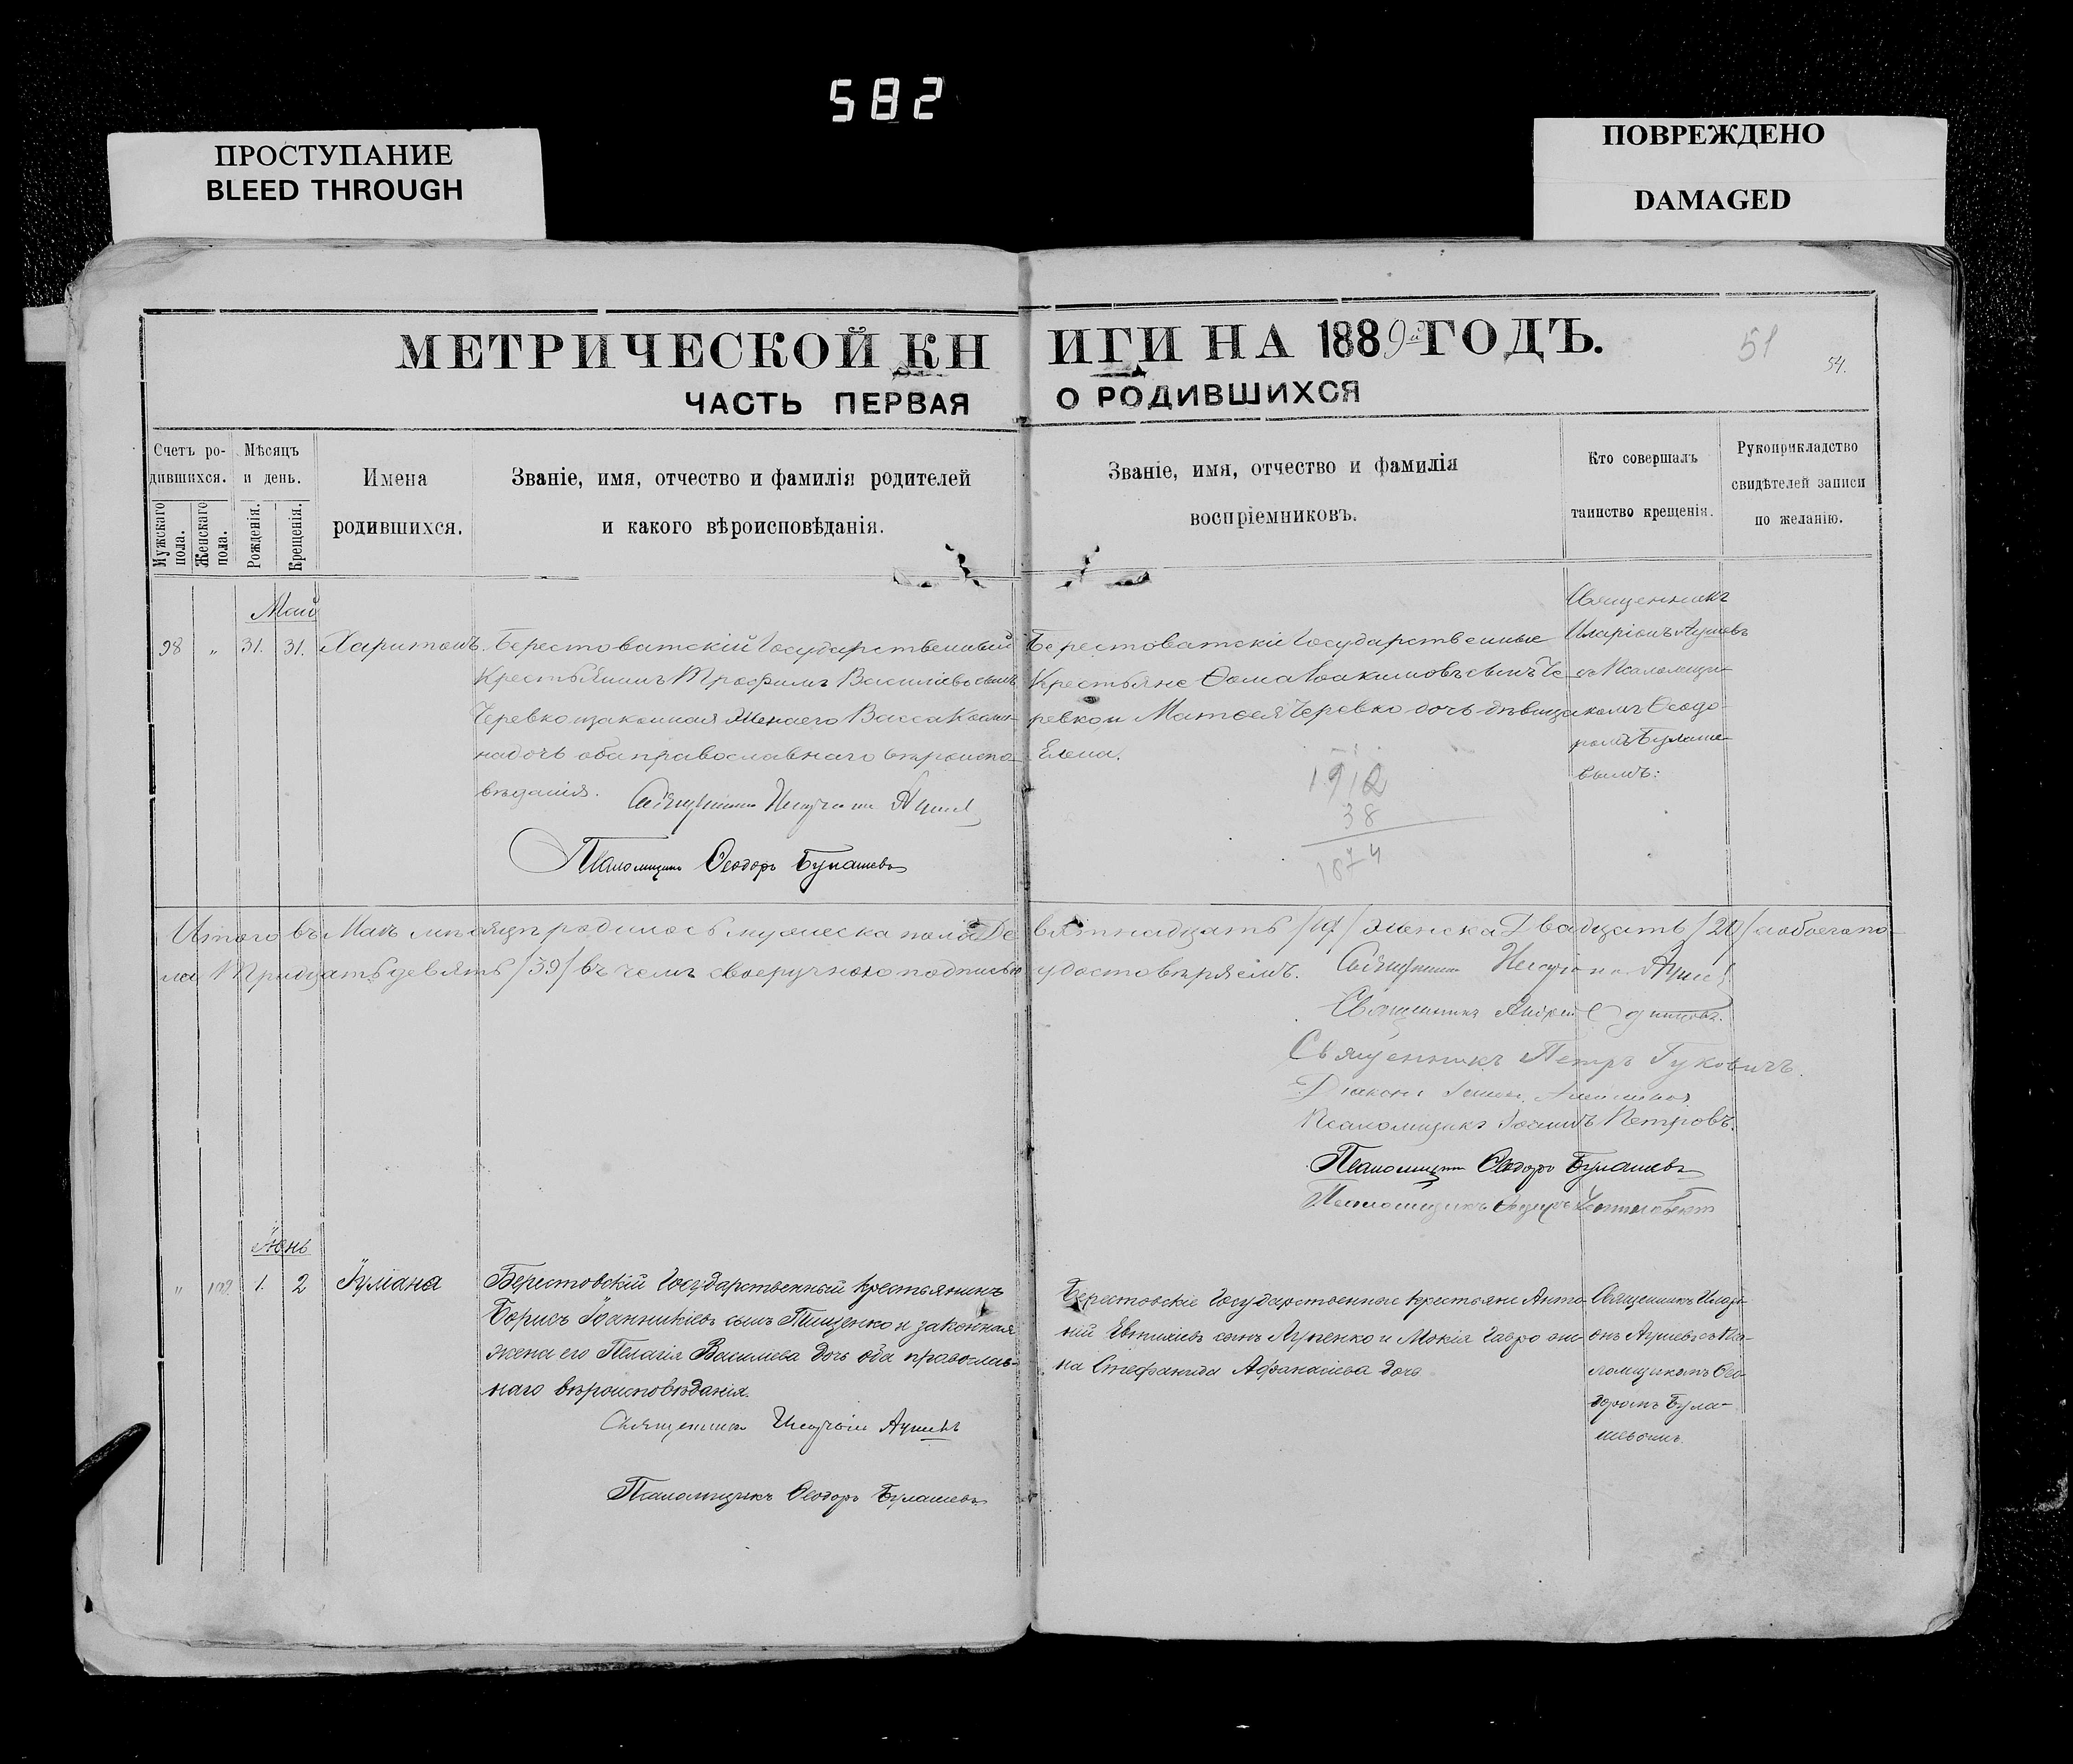 582
ПРОСТУПАНИЕ
BLEED THROUGH
ПОВРЕЖДЕНО
DAMAGED
МЕТРИЧЕСКОЙ КНИГИ НА 1889й ГОДЪ.
51
54.
ЧАСТЬ ПЕРВАЯ О РОДИВШИХСЯ
Счетъ родившихся.
Мужскаго пола.
Женскаго пола.
Мѣсяцъ и день.
Рожденія.
Крещенія.
Имена
родившихся.
Званіе, имя, отчество и фамилія родителей
и какого вѣроисповѣданія.
Званіе, имя, отчество и фамилія
воспріемниковъ.
Кто совершалъ
таинство крещенія.
Рукоприкладство
свидѣтелей записи
по желанію.
Май
98 " 31. 31. Харитонъ.
Берестоватскій Государственный
Крестьянинъ Трофимъ Василіевъ сынъ
Черевко и законная жена его Васса Косми-
на дочь оба православнаго вѣроиспо-
вѣданія.
Священникъ
Псаломщикъ Ѳеодоръ Булашевъ
Берестоватскіе Государственные
Крестьяне Ѳома Іоакимовъ сынъ Че-
ревко и Матѳея Черевко дочь дѣвица
Елена.
Священникъ
Иларіонъ
съ Псаломщи-
комъ Ѳеодо-
ромъ Булаше-
вымъ:
1912
38
1874
Итого въ Маѣ мѣсяцѣ родилось мужеска пола Девятнадцать /19/ женска Двадцать /20/ а обоего по-
ла Тридцать девять /39/ въ чемъ своеручною подписью удостовѣряемъ.
Священникъ
Священникъ Андрей
Священникъ Петръ Гуковичъ.
Діаконъ
Псаломщикъ Іоаннъ Петровъ.
Псаломщикъ Ѳеодоръ Булашевъ
Псаломщикъ
Іюнь
" 102 1. 2 Іуліана
Берестовскій Государственный крестьянинъ
Борисъ Іоанникіевъ сынъ Тищенко и законная
жена его Пелагія Василіева дочь оба православ-
наго вѣроисповѣданія.
Священникъ
Псаломщикъ Ѳеодоръ Булашевъ
Берестовскіе Государственные крестьяне Анто-
ній Евтихіевъ сынъ и Мокія Гавро
на Стефанида Афанасіева дочь
Священникъ Илорі-
онъ съ Пса-
ломщикомъ Ѳео-
доромъ Була-
шевымъ.